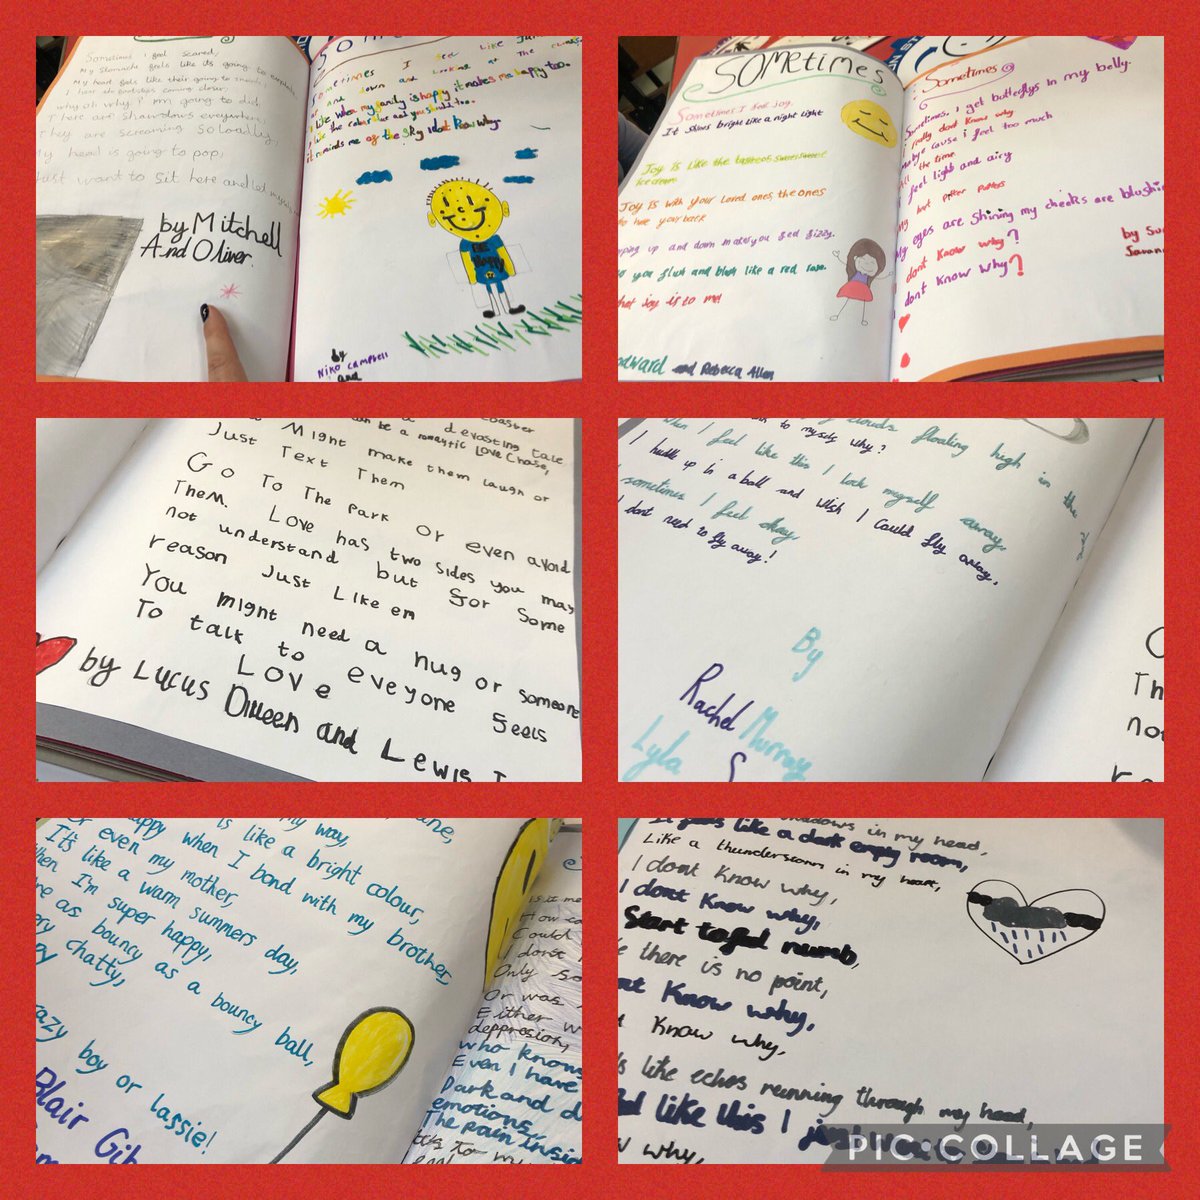 Sometimes I feel scared,
My stomach feels like its going to explode
My heart feels like their going to
I hear coming closer,
why oh why? I'm going to die
There are shawdows everywhere,
They are screaming so loadly,
My head is going to pop,
Just want to sit here and let
by Mitchell
And Oliver.
SOME
Sometimes I feel like Jum
and down and looking at the
I like when my family is happy it makes me happy too.
I like the color blue and you should to...
it reminds me of the sky I dont know why.
by
Niko Campbell
and
SOMEtimes
Sometimes I feel joy.
It shines bright like a night light
Joy is like the tasteof sweet
ice cream
Joy is with your loved ones, the ones
to have your back
mping up and down makes you feel fizzy.
you flush and blush like a red rose.
that joy is to me!
odward and Rebecca Allan
Sometimes
Sometimes, I get butterflys in my belly.
I really dont know why
maybe cause i feel too much
All the time
I feel light and airy
My hart pitter patters
My eyes are shining my cheeks are blushin
I dont know why?
I dont know why?
by Su
Savan
coaster
a devasting tale
can be a romantic Love Chase,
Might make them laugh or
Just Text Them
Go To The park or even avoid
Them. Love has two sides you may
not understand but for some
reason Just like em
You might need a hug or someone
To talk to eveyone feels
Love
by Lucus Dineen and Lewis
clouds floating high in the
to myself why?
When I feel like this I lock myself away
I huddle up in a ball and wish I could fly away,
sometimes I feel okay
I dont need to fly away!
By
Rachel Murray
Lyla S
Th
no
re
my way,
is like a bright colour,
happy when I bond with my brother
Or even my mother,
It's like a warm summers day,
When I'm super happy,
re as bouncy as a bouncy ball,
ery chatty,
razy boy or lassie!
Blair Gib
is it me
How co
Could
I dont
Only so
Or was
Either w
deppresion,
who knows
Even I have
Dark and d
emotions
The pain insi
its to my
shadows in my head,
It feels like a dark empty room,
Like a thunderstorm in my heart,
I dont know why,
I dont know why,
Start to feel numb,
e there is no point,
nt know why,
t know why,
s like echos reunning through my head,
el like this I
w why,
PIC•COLLAGE